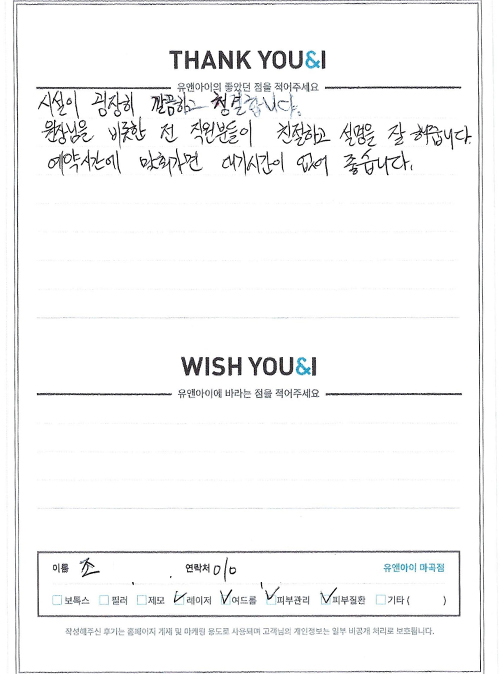 THANK YOU&I
유앤아이의 좋았던 점을 적어주세요
시설이 굉장히 깔끔하고 청결합니다.
원장님을 비롯한 전 직원분들이 친절하고 설명을 잘 해줍니다.
예약시간에 맞춰가면 대기시간이 없어 좋습니다.
WISH YOU&I
유앤아이에 바라는 점을 적어주세요
이름 조 연락처 010 유앤아이 마곡점
보톡스 필러 제모 레이저 여드름 피부관리 피부질환 기타 ( )
작성해주신 후기는 홈페이지 게재 및 마케팅 용도로 사용되며 고객님의 개인정보는 일부 비공개 처리로 보호됩니다.